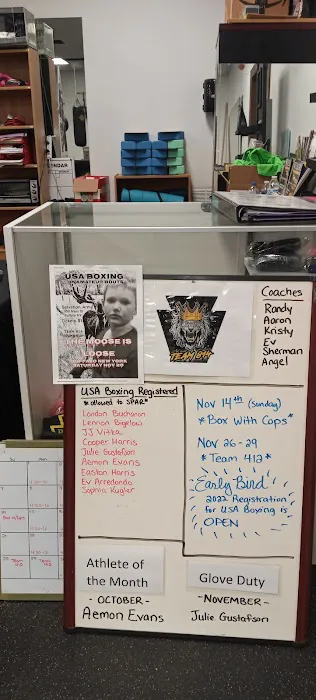 USA BOXING
AMATEUR BOUTS
THE MOOSE IS
LOOSE
NEW YORK
SATURDAY NOV 20
TEAM
Coaches
Randy
Aaron
Kristy
Ev
Sherman
Angel
USA Boxing Registered
*allowed to SPAR*
Landon Buchanan
Lennon Bigelow
JJ Vitka
Cooper Harris
Julie Gustafson
Aemon Evans
Easton Harris
Ev Arredondo
Sophia Kugler
Nov 14th (Sunday)
*Box With Cops*
Nov 26-29
*Team 412*
Early Bird
2022 Registration
for USA Boxing is
OPEN
Athlete of
the Month
- OCTOBER -
Aemon Evans
Glove Duty
-NOVEMBER-
Julie Gustafson